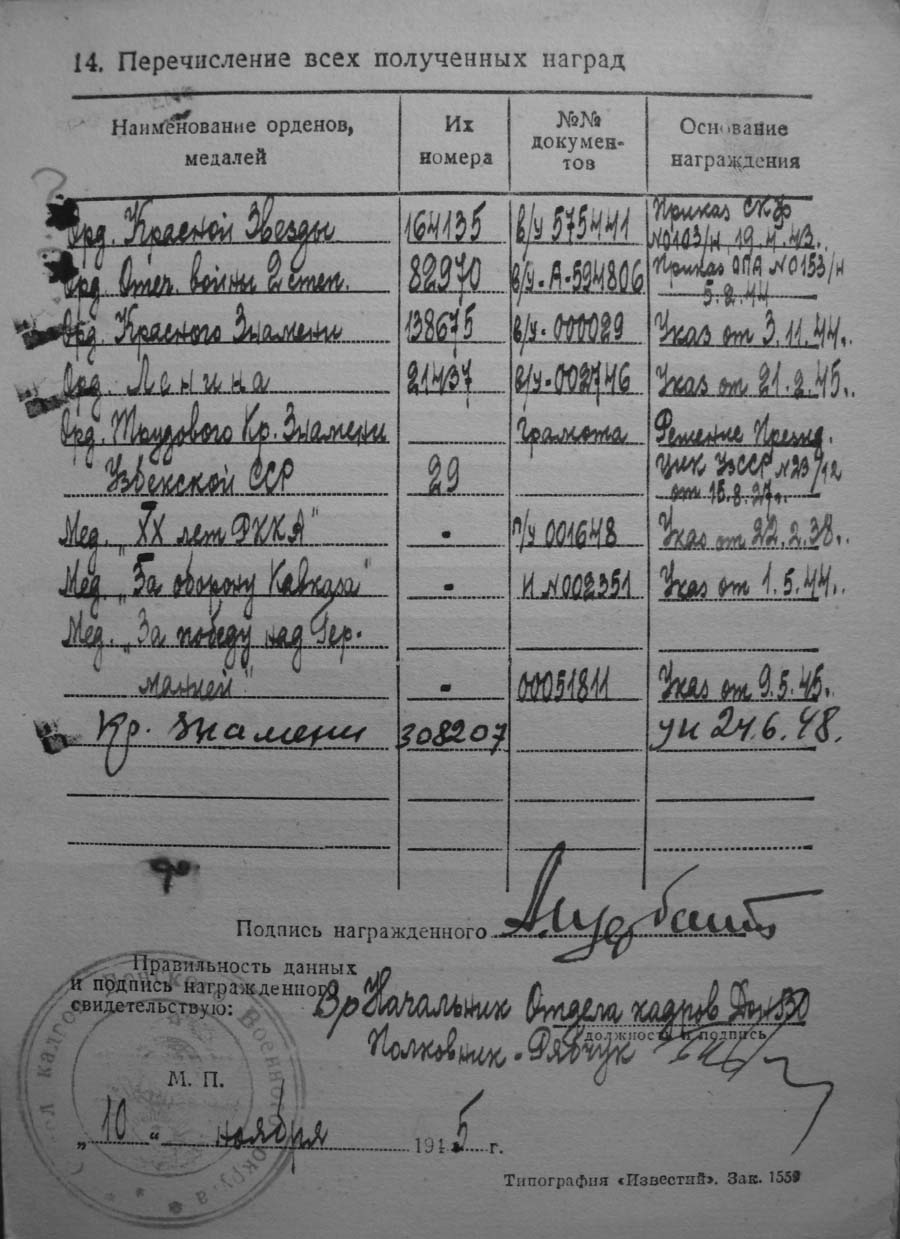 14. Перечисление всех полученных наград
Наименование орденов, медалей
Их номера
№№ докумен-тов
Основание награждения
Орд. Красной Звезды 164135 в/у 575441 Приказ СКФ №0103/н 19.4.43.
Орд. Отеч. войны 2 степ. 82970 в/у-А-594806 Приказ ОПА №0153/н 5.2.44
Орд. Красного Знамени 138675 в/у-000029 Указ от 3.11.44.
Орд. Ленина 21437 в/у-002746 Указ от 21.2.45.
Орд. Трудового Кр. Знамени грамота Решение Презид.
Узбекской ССР 29 ЦИК УзССР №23/12 от 15.8.27г.
Мед. "XX лет РККА" - п/у 001648 Указ от 22.2.38.
Мед. "За оборону Кавказа" - И №002351 Указ от 1.5.44.
Мед. "За победу над Гер-
манией" - 00051811 Указ от 9.5.45.
Кр. Знамени 308207 ук 24.6.48.
Подпись награжденного
Правильность данных
и подпись награжденного
свидетельствую:
Вр Начальник Отдела кадров ДонВО
должность и подпись
Полковник - Рябчук
М. П.
Донско Военного Окру а
"10" ноября 1945 г.
Типография «Известий». Зак. 1559